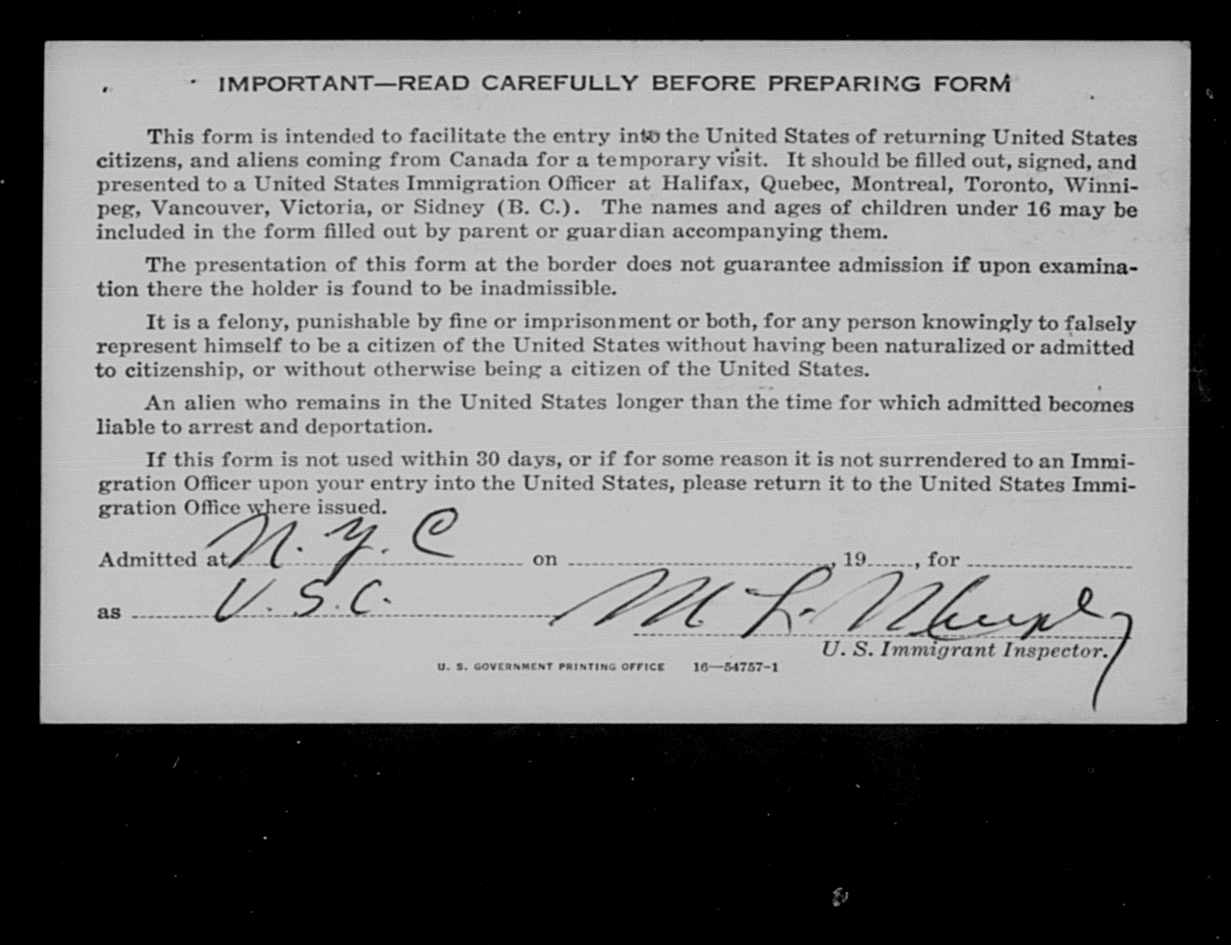 IMPORTANT—READ CAREFULLY BEFORE PREPARING FORM
This form is intended to facilitate the entry into the United States of returning United States
citizens, and aliens coming from Canada for a temporary visit. It should be filled out, signed, and
presented to a United States Immigration Officer at Halifax, Quebec, Montreal, Toronto, Winni-
peg, Vancouver, Victoria, or Sidney (B. C.). The names and ages of children under 16 may be
included in the form filled out by parent or guardian accompanying them.
The presentation of this form at the border does not guarantee admission if upon examina-
tion there the holder is found to be inadmissible.
It is a felony, punishable by fine or imprisonment or both, for any person knowingly to falsely
represent himself to be a citizen of the United States without having been naturalized or admitted
to citizenship, or without otherwise being a citizen of the United States.
An alien who remains in the United States longer than the time for which admitted becomes
liable to arrest and deportation.
If this form is not used within 30 days, or if for some reason it is not surrendered to an Immi-
gration Officer upon your entry into the United States, please return it to the United States Immi-
gration Office where issued.
Admitted at N. Y. C on , 19 , for
as U. S. C. M. L. Murphy
U. S. Immigrant Inspector.
U. S. GOVERNMENT PRINTING OFFICE 16—54757-1